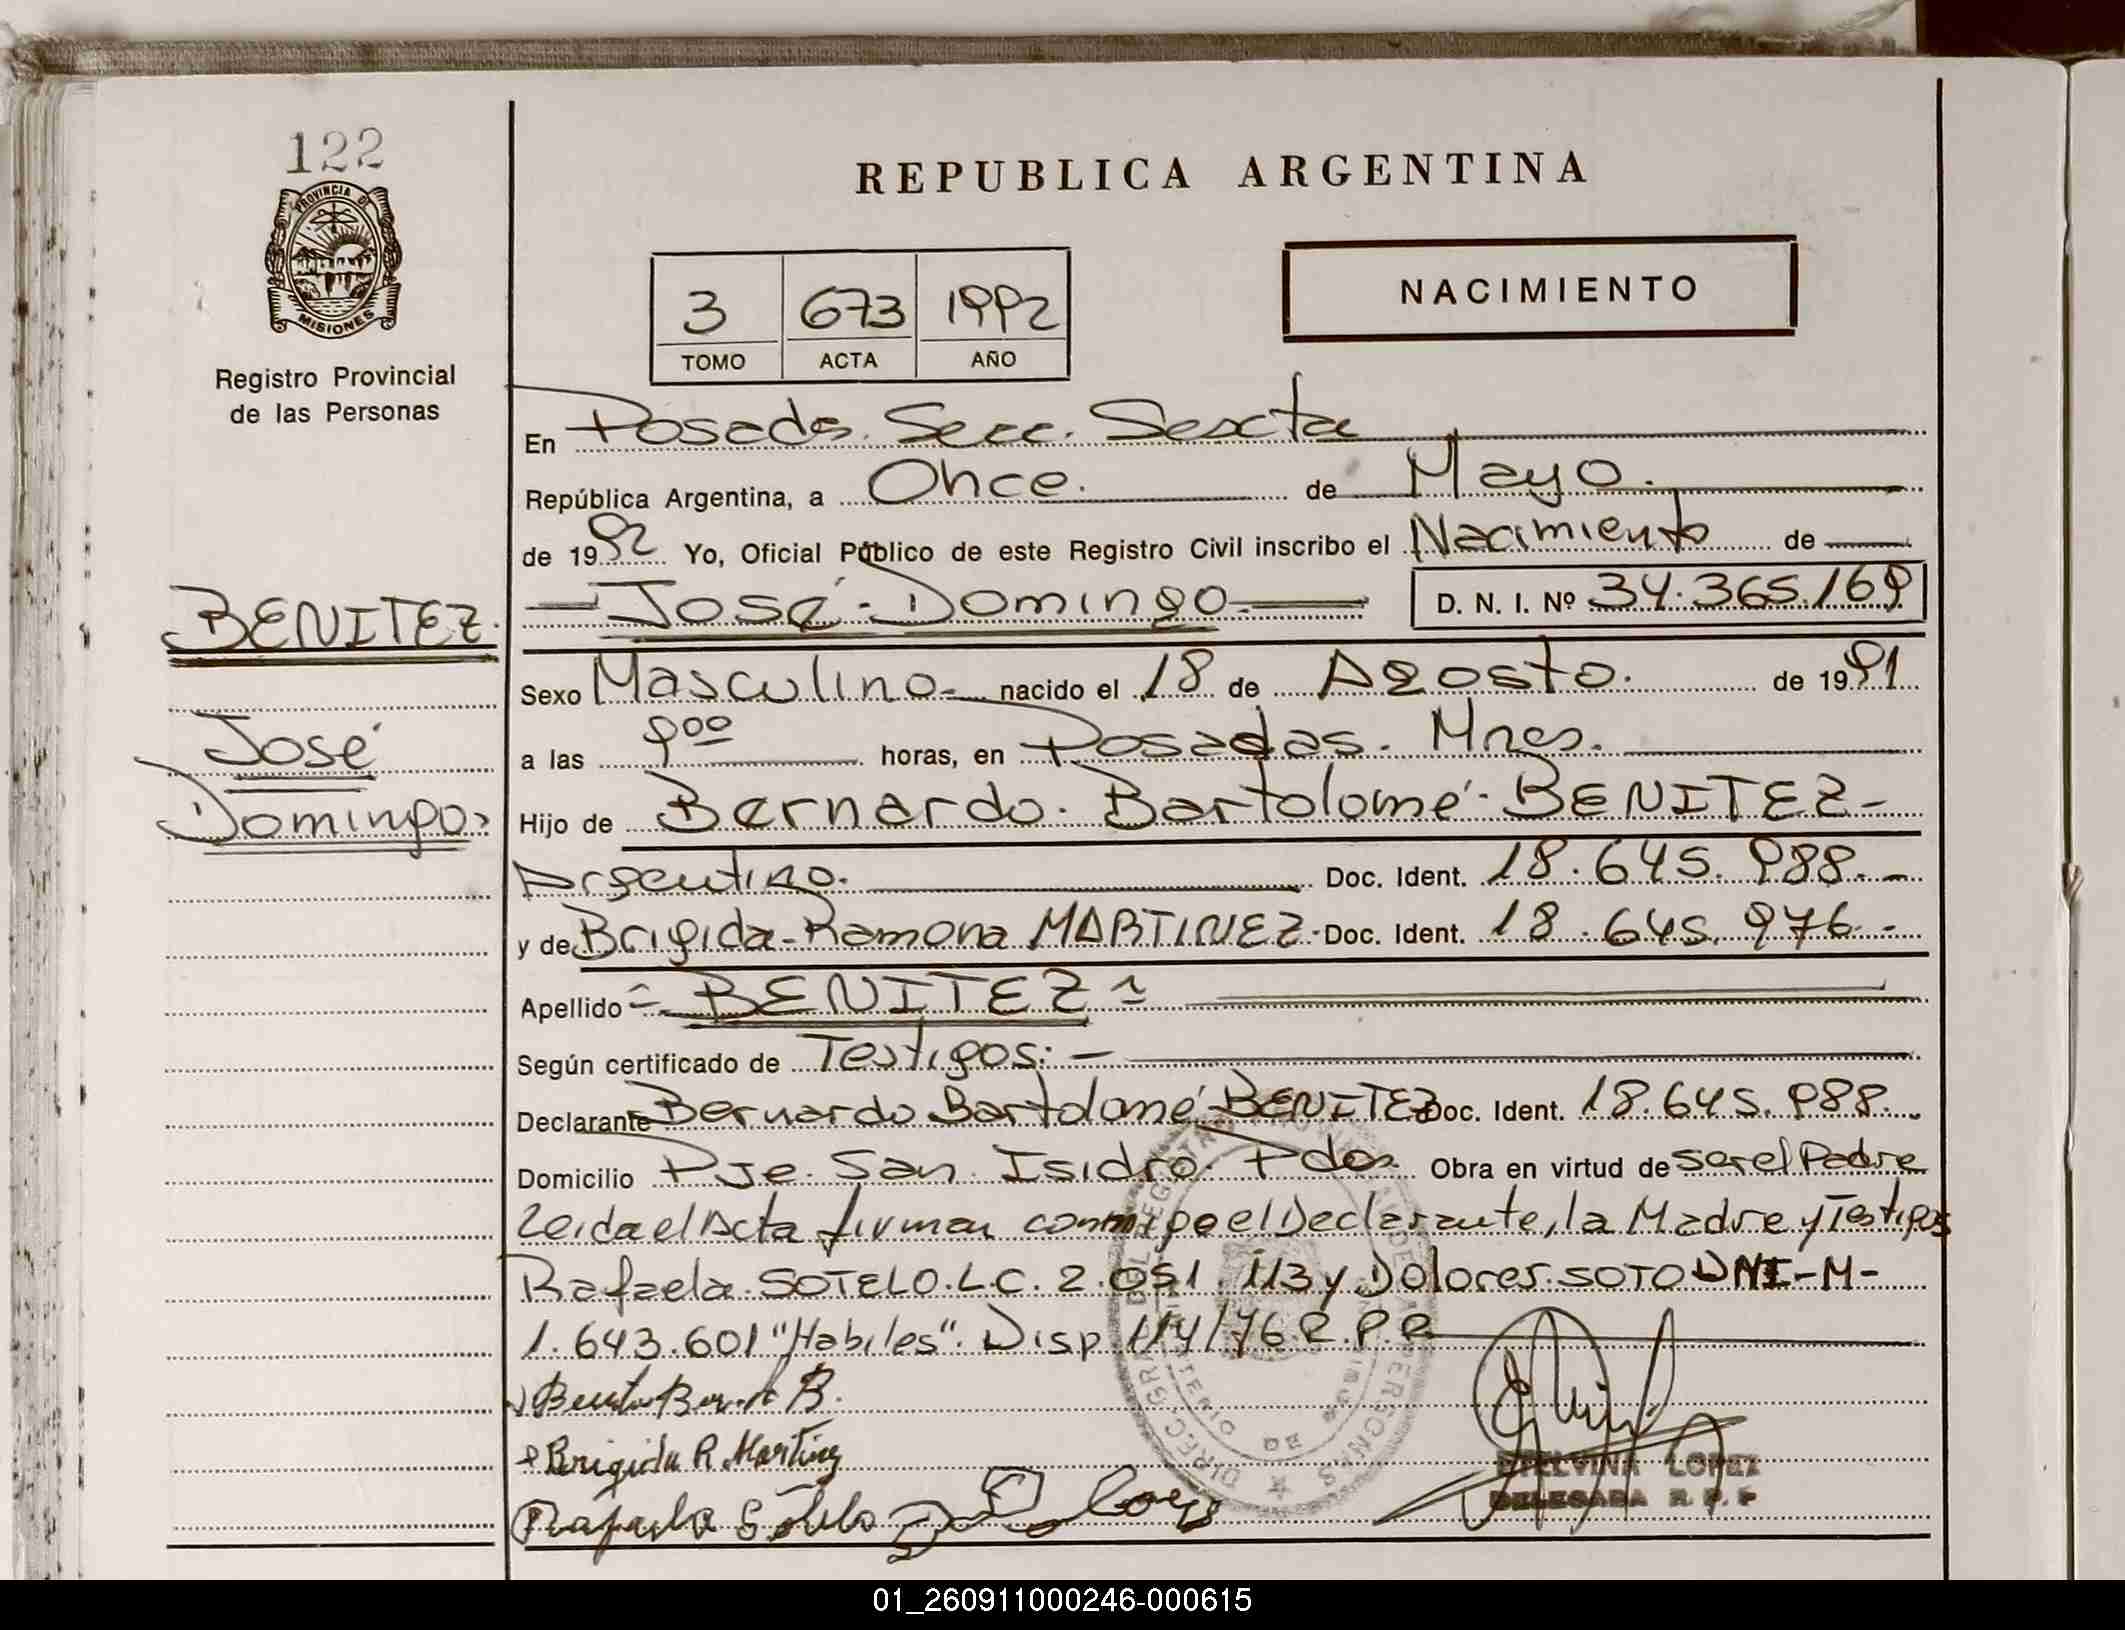 122
PROVINCIA DE
MISIONES
Registro Provincial
de las Personas
REPUBLICA ARGENTINA
3 673 1992
TOMO ACTA AÑO
NACIMIENTO
En Posadas. Secc. Sexta
República Argentina, a Once. de Mayo.
de 1992 Yo, Oficial Público de este Registro Civil inscribo el Nacimiento de
BENITEZ.
José
Domingo
José - Domingo D. N. I. Nº 34.365.169
Sexo Masculino nacido el 18 de Agosto. de 1991
a las 9 00 horas, en Posadas. Mnes.
Hijo de Bernardo. Bartolomé - BENITEZ -
Argentino. Doc. Ident. 18.645.988.-
y de Brigida - Ramona MARTINEZ - Doc. Ident. 18.645.976.-
Apellido = BENITEZ =
Según certificado de Testigos: -
Declarante Bernardo Bartolomé BENITEZ Doc. Ident. 18.645.988.
Domicilio Pje. San Isidro. Pdas. Obra en virtud de ser el Padre
Leida el Acta firman conmigo el Declarante, la Madre y Testigos
Rafaela SOTELO. L.C. 2.051.113 y Dolores. SOTO DNI-M-
1.643.601 "Habiles". Disp. 114/76 R.P.P.
Brigida R. Martinez
Rafaela Sotelo
ETELVINA LOPEZ
DELEGADA R. P. P.
01_260911000246-000615